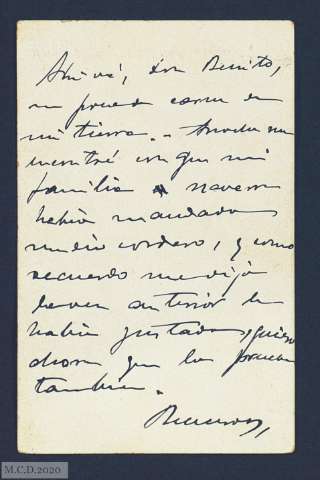 Ahí vá, don Benito,
un poco de carne de
mi tierra. - Anoche me
encontré con que mi
familia navarra
había mandado
medio cordero, y como
recuerdo me dijo
la vez anterior le
había gustado, quiero
ahora que lo pruebe
tambien.
M.C.D.2020